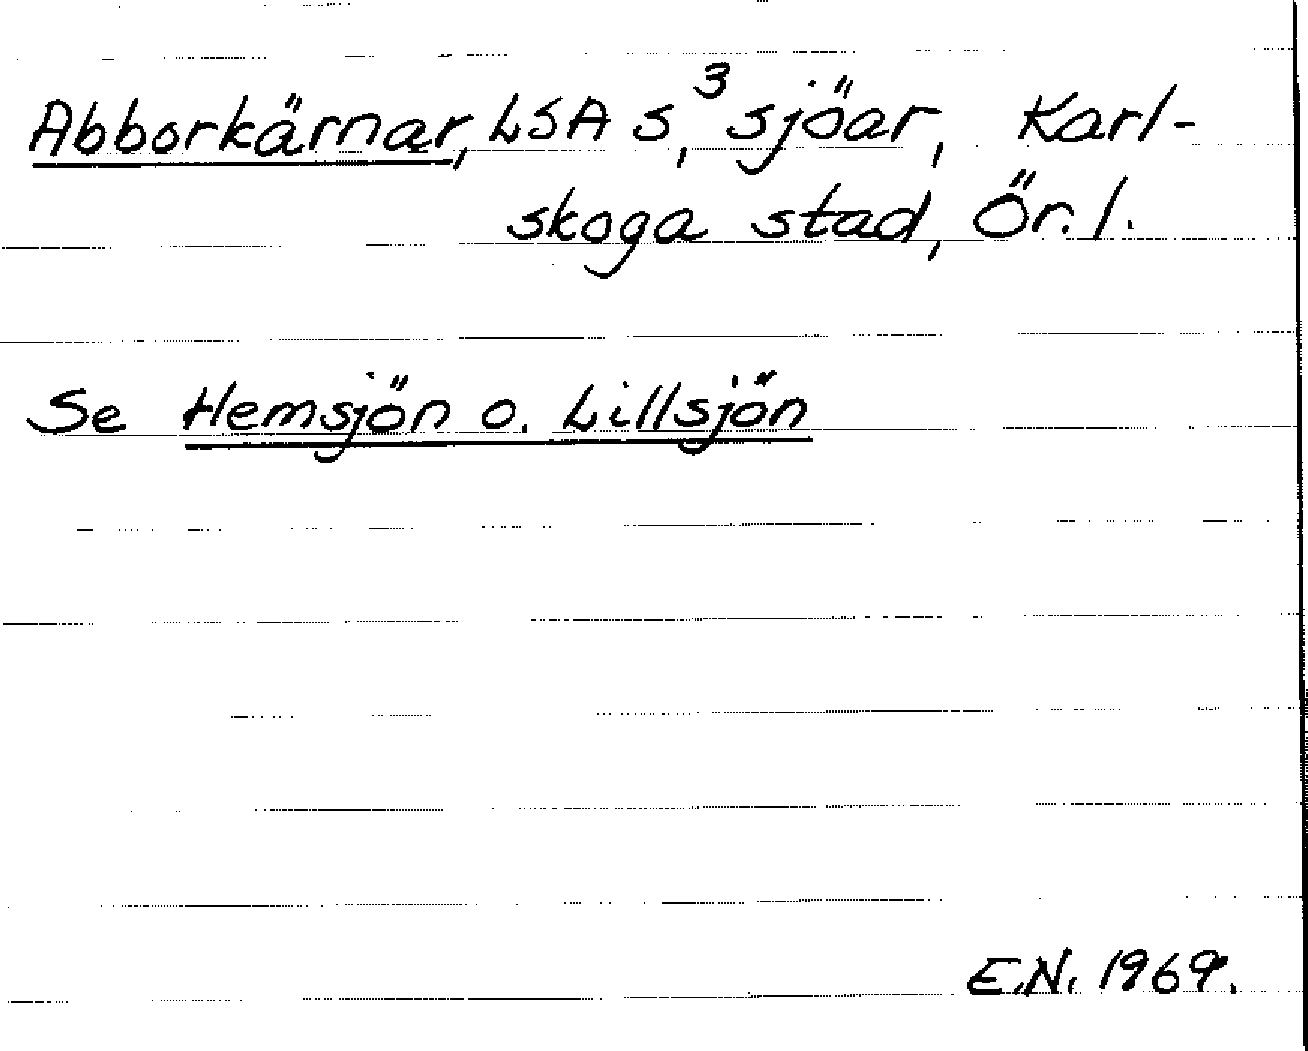 Abborkärnar, LSA s, 3 sjöar, Karl-
skoga stad, Ör. l.
Se Hemsjön o. Lillsjön
E.N. 1969.